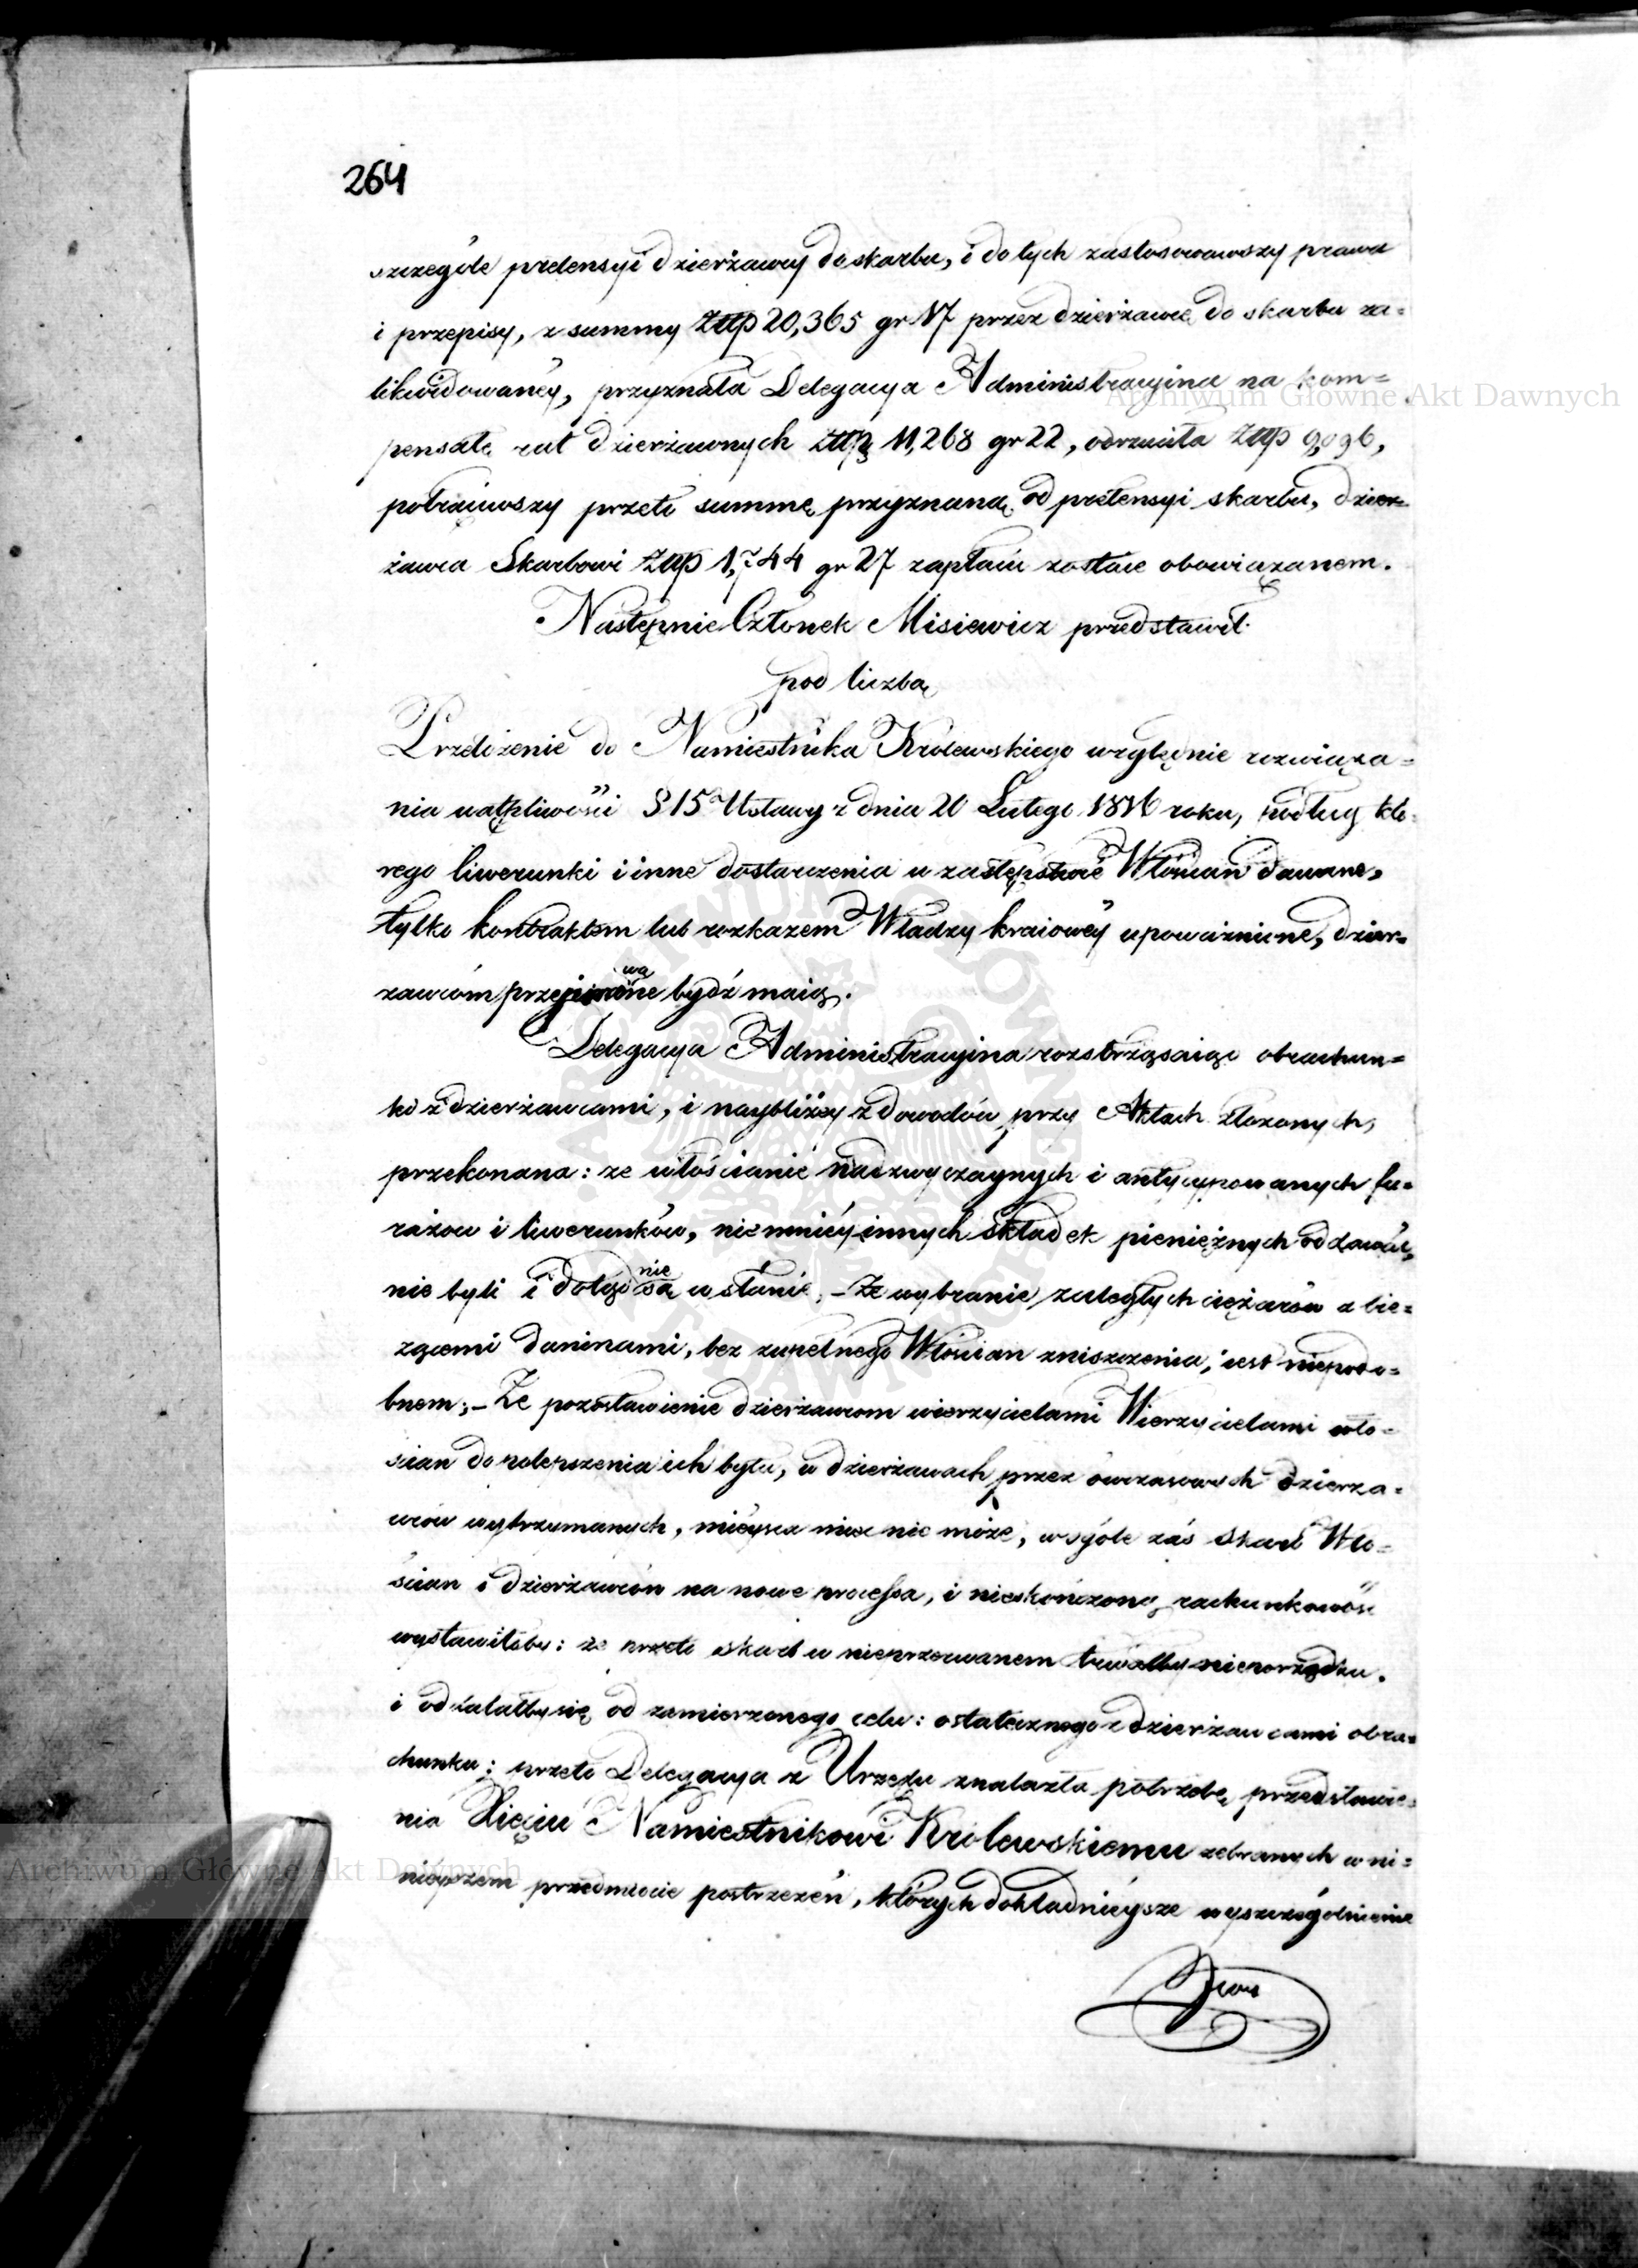 264
szczególe pretensyi dzierżawcy do skarbu, i do tych zastosowawszy prawa
i przepisy, z summy Złłp 20,365 gr 17 przez dzierżawcę do skarbu za=
likwidowanéy, przyznała Delegacya Administracyina na kom=
pensatę rat dzierżawnych Złłp 11,268 gr 22, odrzuciła Złłp 9,096,
potrąciwszy przeto summę przyznaną od pretensyi skarbu, dzier=
żawca Skarbowi Złłp 1,744 gr 27 zapłacić zostaie obowiązanem.
Następnie Członek Misiewicz przedstawił
pod liczbą
Przełożenie do Namiestnika Królewskiego względnie rozwiąza=
nia wątpliwości § 15 Ustawy z dnia 20 Lutego 1816 roku, podług któ=
rego liwerunki i inne dostarczenia w zastępstwie Włościan dawane,
tylko kontraktem lub rozkazem Władzy kraiowéy upoważnione, dzier=
żawcom przyimowane bydź maią.
Delegacya Administracyina rozstrząsaiąc obrachun=
ki z dzierżawcami, i naybliżéy z dowodów przy Aktach złożonych,
przekonana: że włościanie nadzwyczaynych i antycypowanych fu=
rażów i liwerunków, niemniéy innych składek pieniężnych oddawać,
nie byli i dotąd nie są w stanie, – Że wybranie zaległych ciężarów z bie=
żącemi daninami, bez zupełnego Włościan zniszczenia, iest niepodo=
bnem; – Że pozostawienie dzierżawcom wierzycielami Wierzycielami wło=
ścian do polepszenia ich bytu, w dzierżawach przez ówczasowych dzierża=
wców wytrzymanych, mieysca mieć nie może, w ogóle zaś skarb Wło=
ścian i dzierżawców na nowe processa, i nieskończoną rachunkowość
wystawiłoby: że przeto skarb w nieprzerwanem trwałby nieporządku.
i oddalałby się od zamierzonego celu: ostatecznego z dzierżawcami obra=
chunku; przeto Delegacya z Urzędu znalazła potrzebę przedstawie=
nia Xięciu Namiestnikowi Królewskiemu zebranych w ni=
nieyszem przedmiocie postrzeżeń, których dokładnieysze wyszczególnienie
Archiwum Główne Akt Dawnych
Archiwum Główne Akt Dawnych